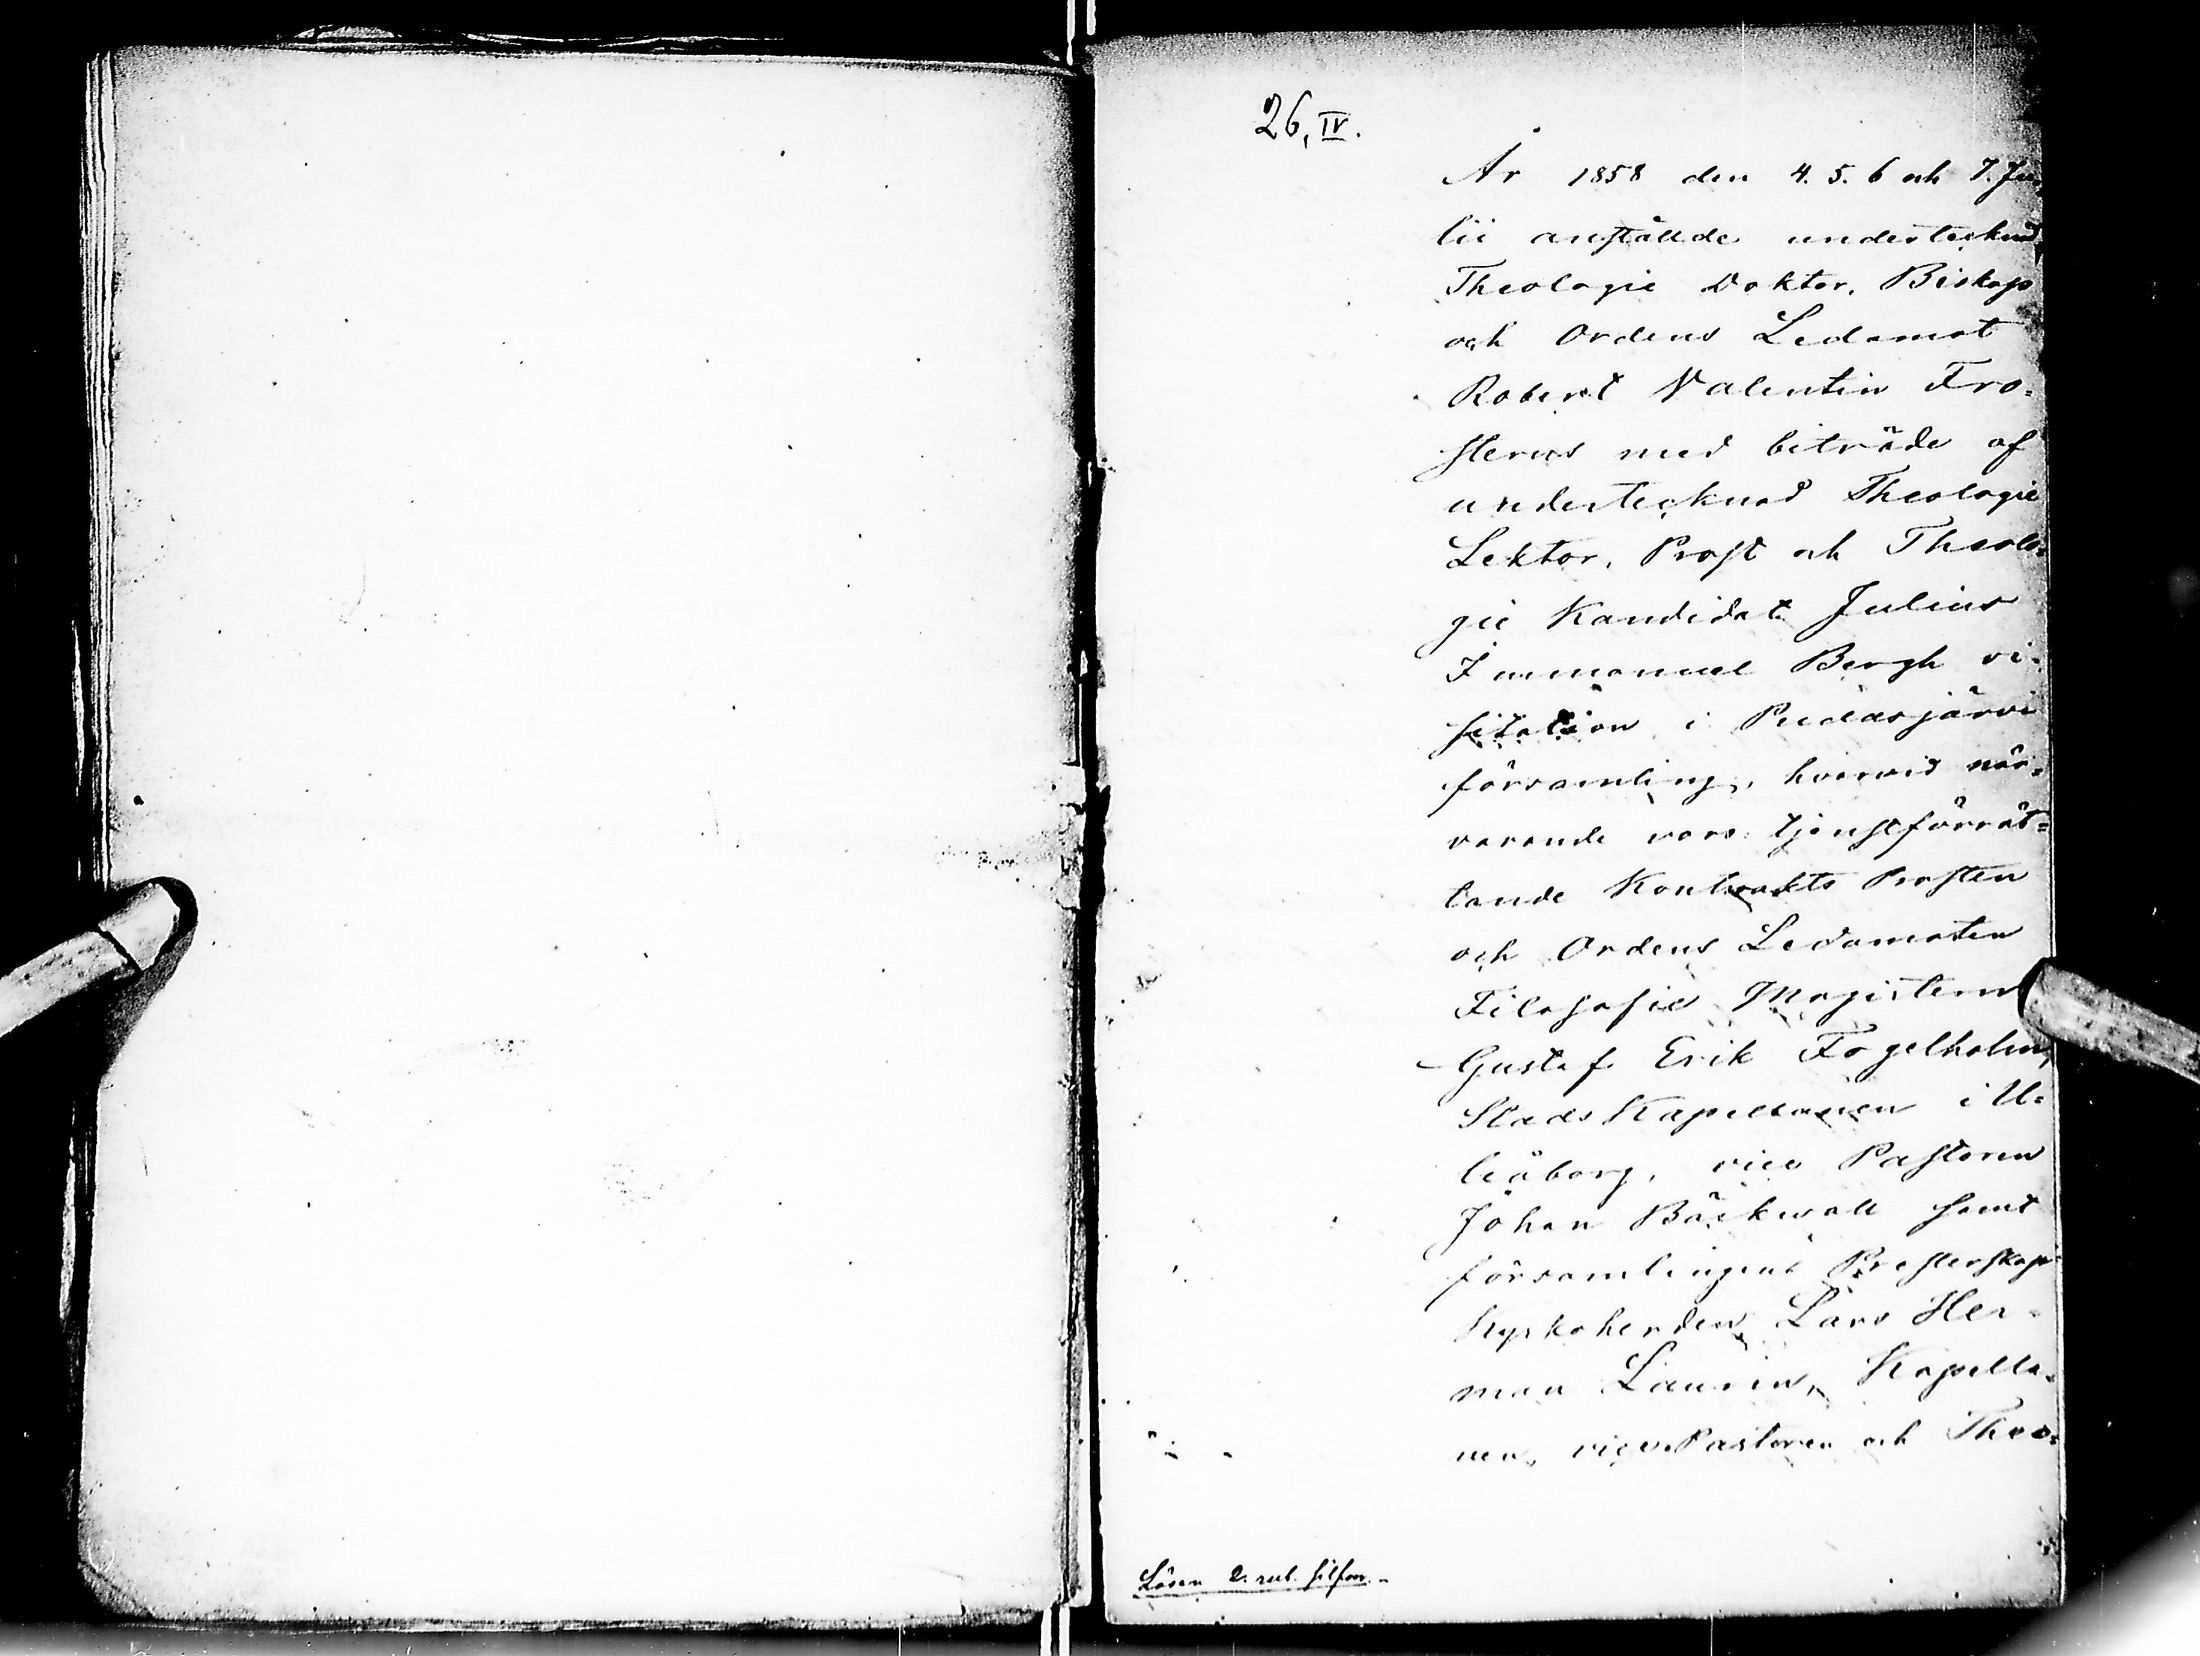 26, IV.
År 1858 den 4. 5. 6 och 7. Ju-
lii anställde undertecknad
Theologie Doktor, Biskop
och Ordens Ledamot
Robert Valentin Fro-
sterus med biträde af
undertecknad Theologie
Lektor, Prost och Theolo-
gie Kandidat Julius
Immanuel Bergh vi-
sitation i Pudasjärvi
församling, hvarvid när-
varande voro: tjenstförrät-
tande Kontrakts Prosten
och Ordens Ledamoten
Filosofie Magistern
Gustaf Erik Fogelholm,
Stads Kapellanen i U-
leåborg, vice Pastoren
Johan Bäckwall samt
församlingens Presterskap:
Kyrkoherden Lars Her-
man Laurin, Kapella-
nen, vice Pastoren och Theo-
Lösen 2. rub. silfver.-